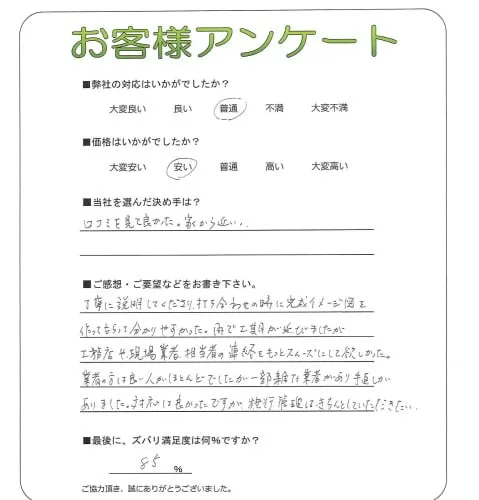 お客様アンケート
■弊社の対応はいかがでしたか？
大変良い 良い 普通 不満 大変不満
■価格はいかがでしたか？
大変安い 安い 普通 高い 大変高い
■当社を選んだ決め手は？
口コミを見て良かった。家から近い。
■ご感想・ご要望などをお書き下さい。
丁寧に説明してくださり、打ち合わせの時に完成イメージ図を
作ってもらって分かりやすかった。雨で工期が延びましたが
工務店や、現場業者、担当者の連絡をもっとスムーズにして欲しかった。
業者の方は良い人がほとんどでしたが一部雑な業者があり手直しが
ありました。対応は良かったですが、施行管理はきちんとしていただきたい。
■最後に、ズバリ満足度は何％ですか？
85 ％
ご協力頂き、誠にありがとうございました。